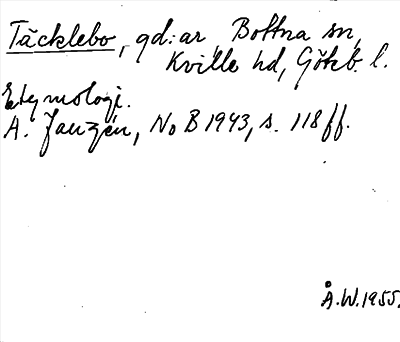 Täcklebo, gd:ar, Bottna sn,
Kville hd, Götb. l.
Etymologi.
A. Janzén, NoB 1943, s. 118 ff.
Å.W. 1955.